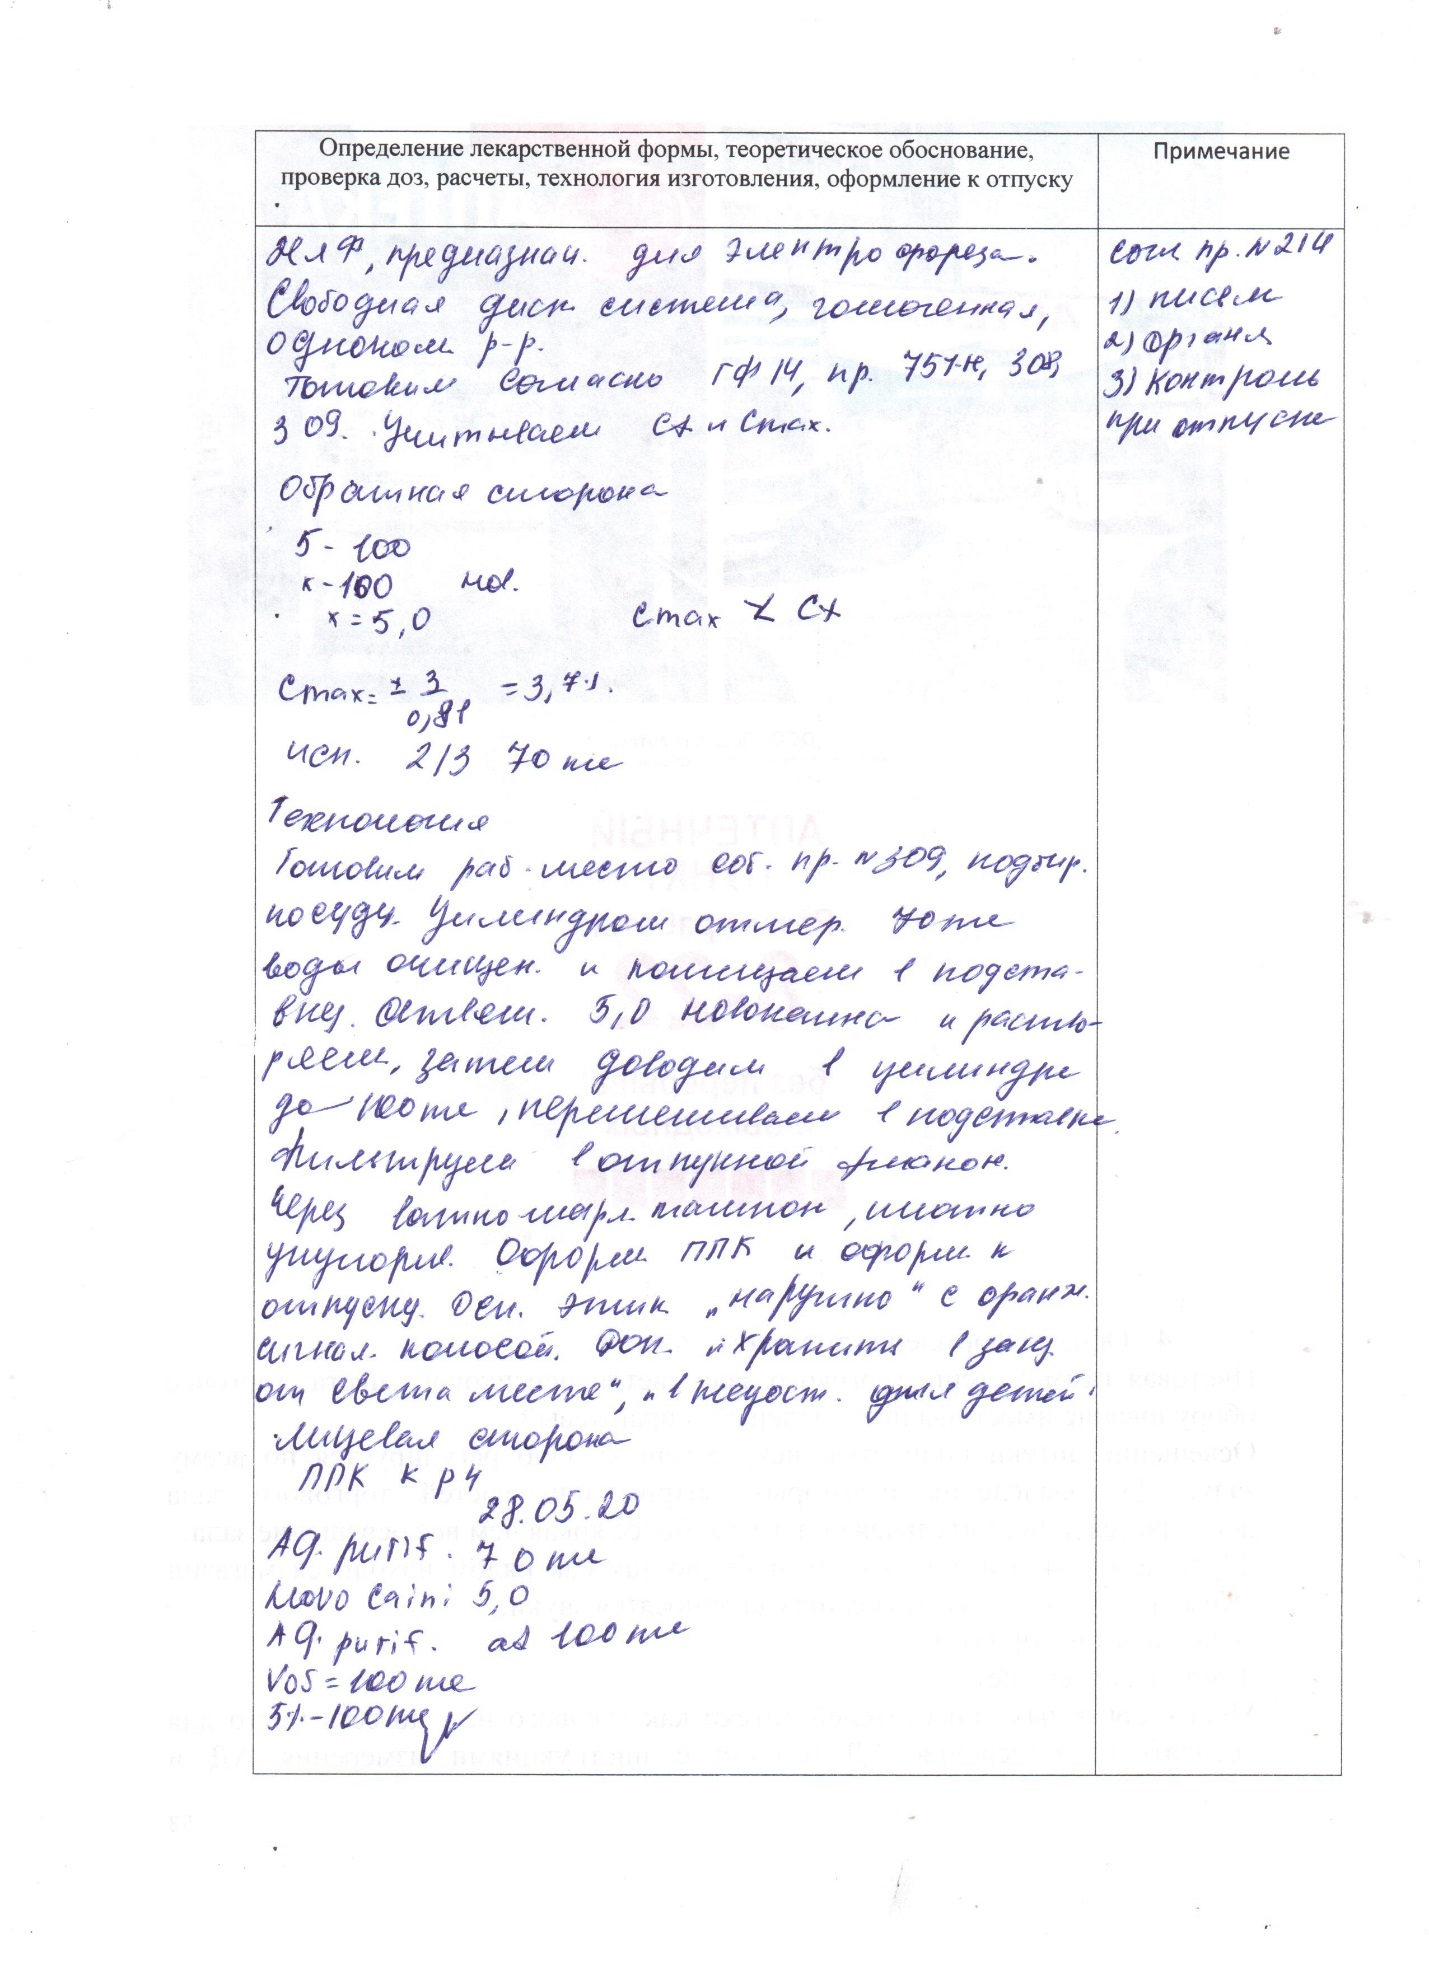 Определение лекарственной формы, теоретическое обоснование,
проверка доз, расчеты, технология изготовления, оформление к отпуску
Примечание
ЖЛФ, предназнач. для электрофореза.
Свободная дисп. система, гомогенная,
однокомп. р-р.
Готовим согласно ГФ 14, пр. 751н, 308,
309. Учитываем Cх и Cmax.
Обратная сторона
5 - 100
x - 100 нов.
x = 5,0
Cmax < Cх
Cmax = ± 3 = 3,7%.
0,81
исп. 2/3 70 мл
Технология
Готовим раб. место соб. пр. №309, подбир.
посуду. Цилиндром отмер. 70 мл
воды очищен. и помещаем в подста-
вку. Отвеш. 5,0 новокаина и раство-
ряем, затем доводим в цилиндре
до 100 мл, перемешиваем в подставке.
Фильтруем в отпускной флакон.
Через ватно марл. тампон, плотно
укупорив. Оформ ППК и оформ к
отпуску. Осн. этик „наружно" с оранж.
сигнал. полосой. Доп. „Хранить в защ.
от света месте", „в недост. для детей
Лицевая сторона
ППК к р 4
28.05.20
Aq. purif. 70 мл
Novocaini 5,0
Aq. purif. ad 100 мл
Vоб = 100 мл
5% - 100 мл
согл пр. №214
1) письм
2) органл
3) контроль
при отпуске